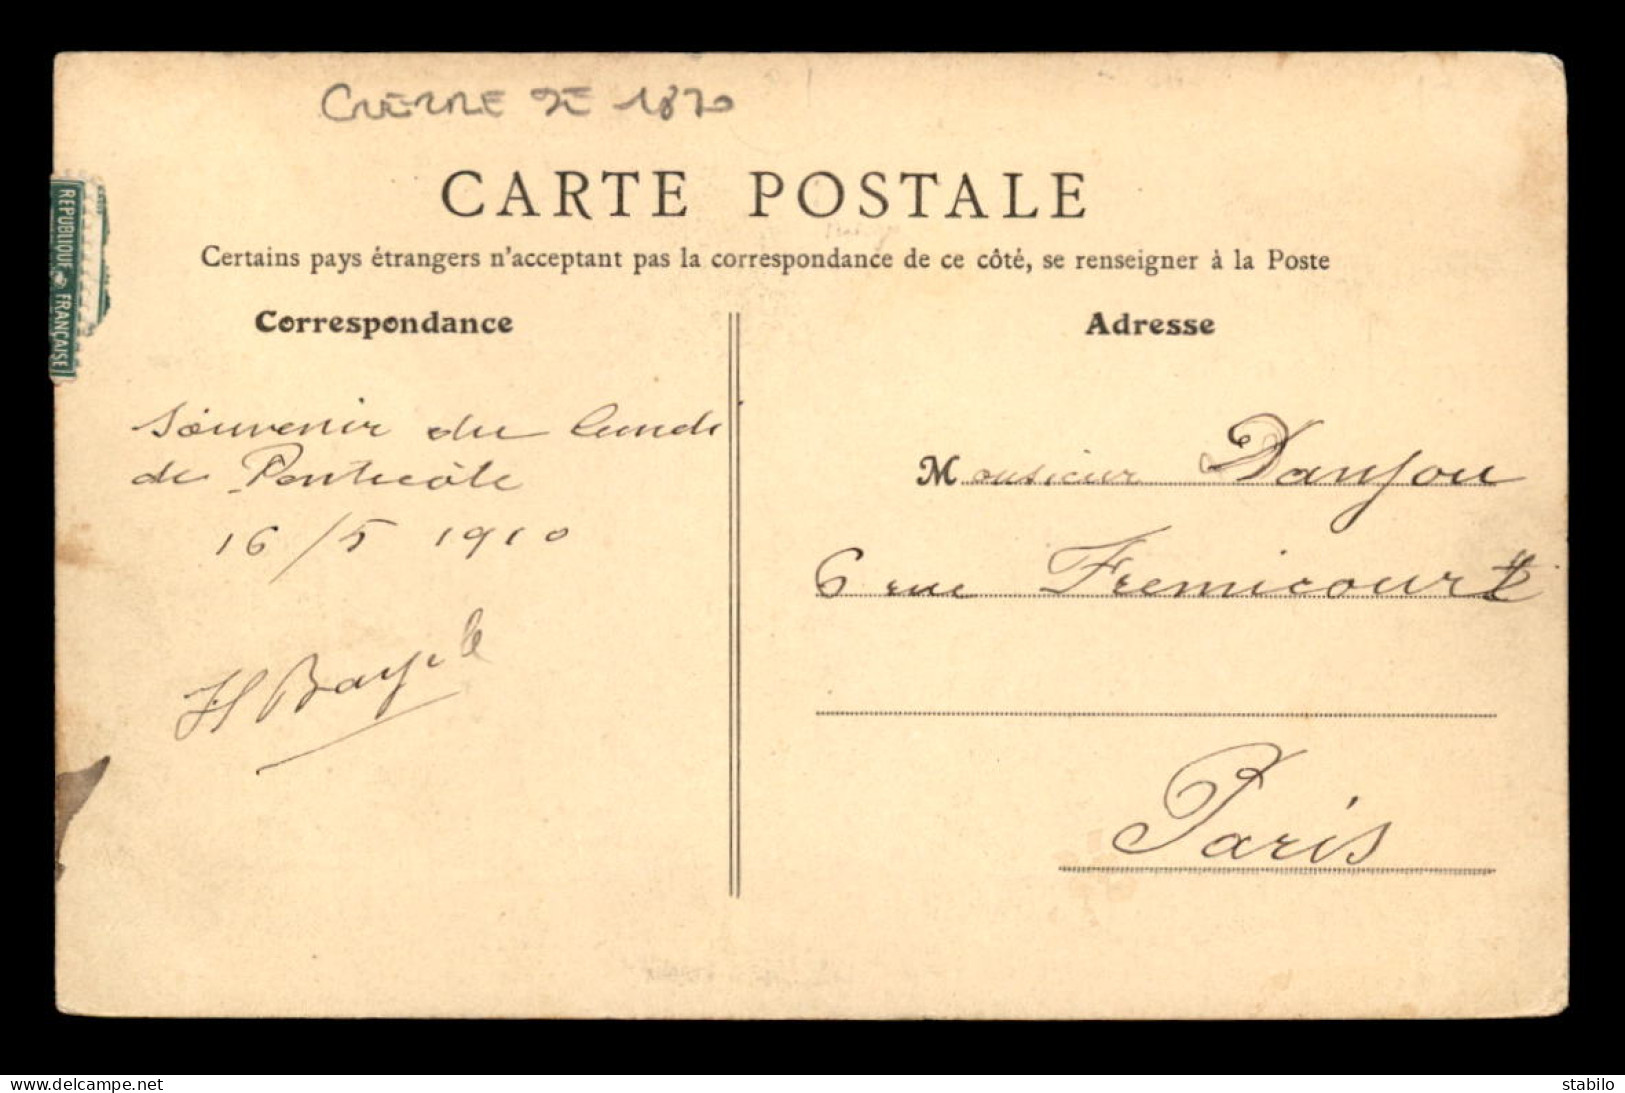 GUERRE DE 1870
CARTE POSTALE
Certains pays étrangers n'acceptant pas la correspondance de ce côté, se renseigner à la Poste
REPUBLIQUE FRANÇAISE
Correspondance
Souvenir du lundi
de Pentecôte
16/5 1910
Adresse
Monsieur Danjou
6 rue Fremicourt
Paris
www.delcampe.net
stabilo